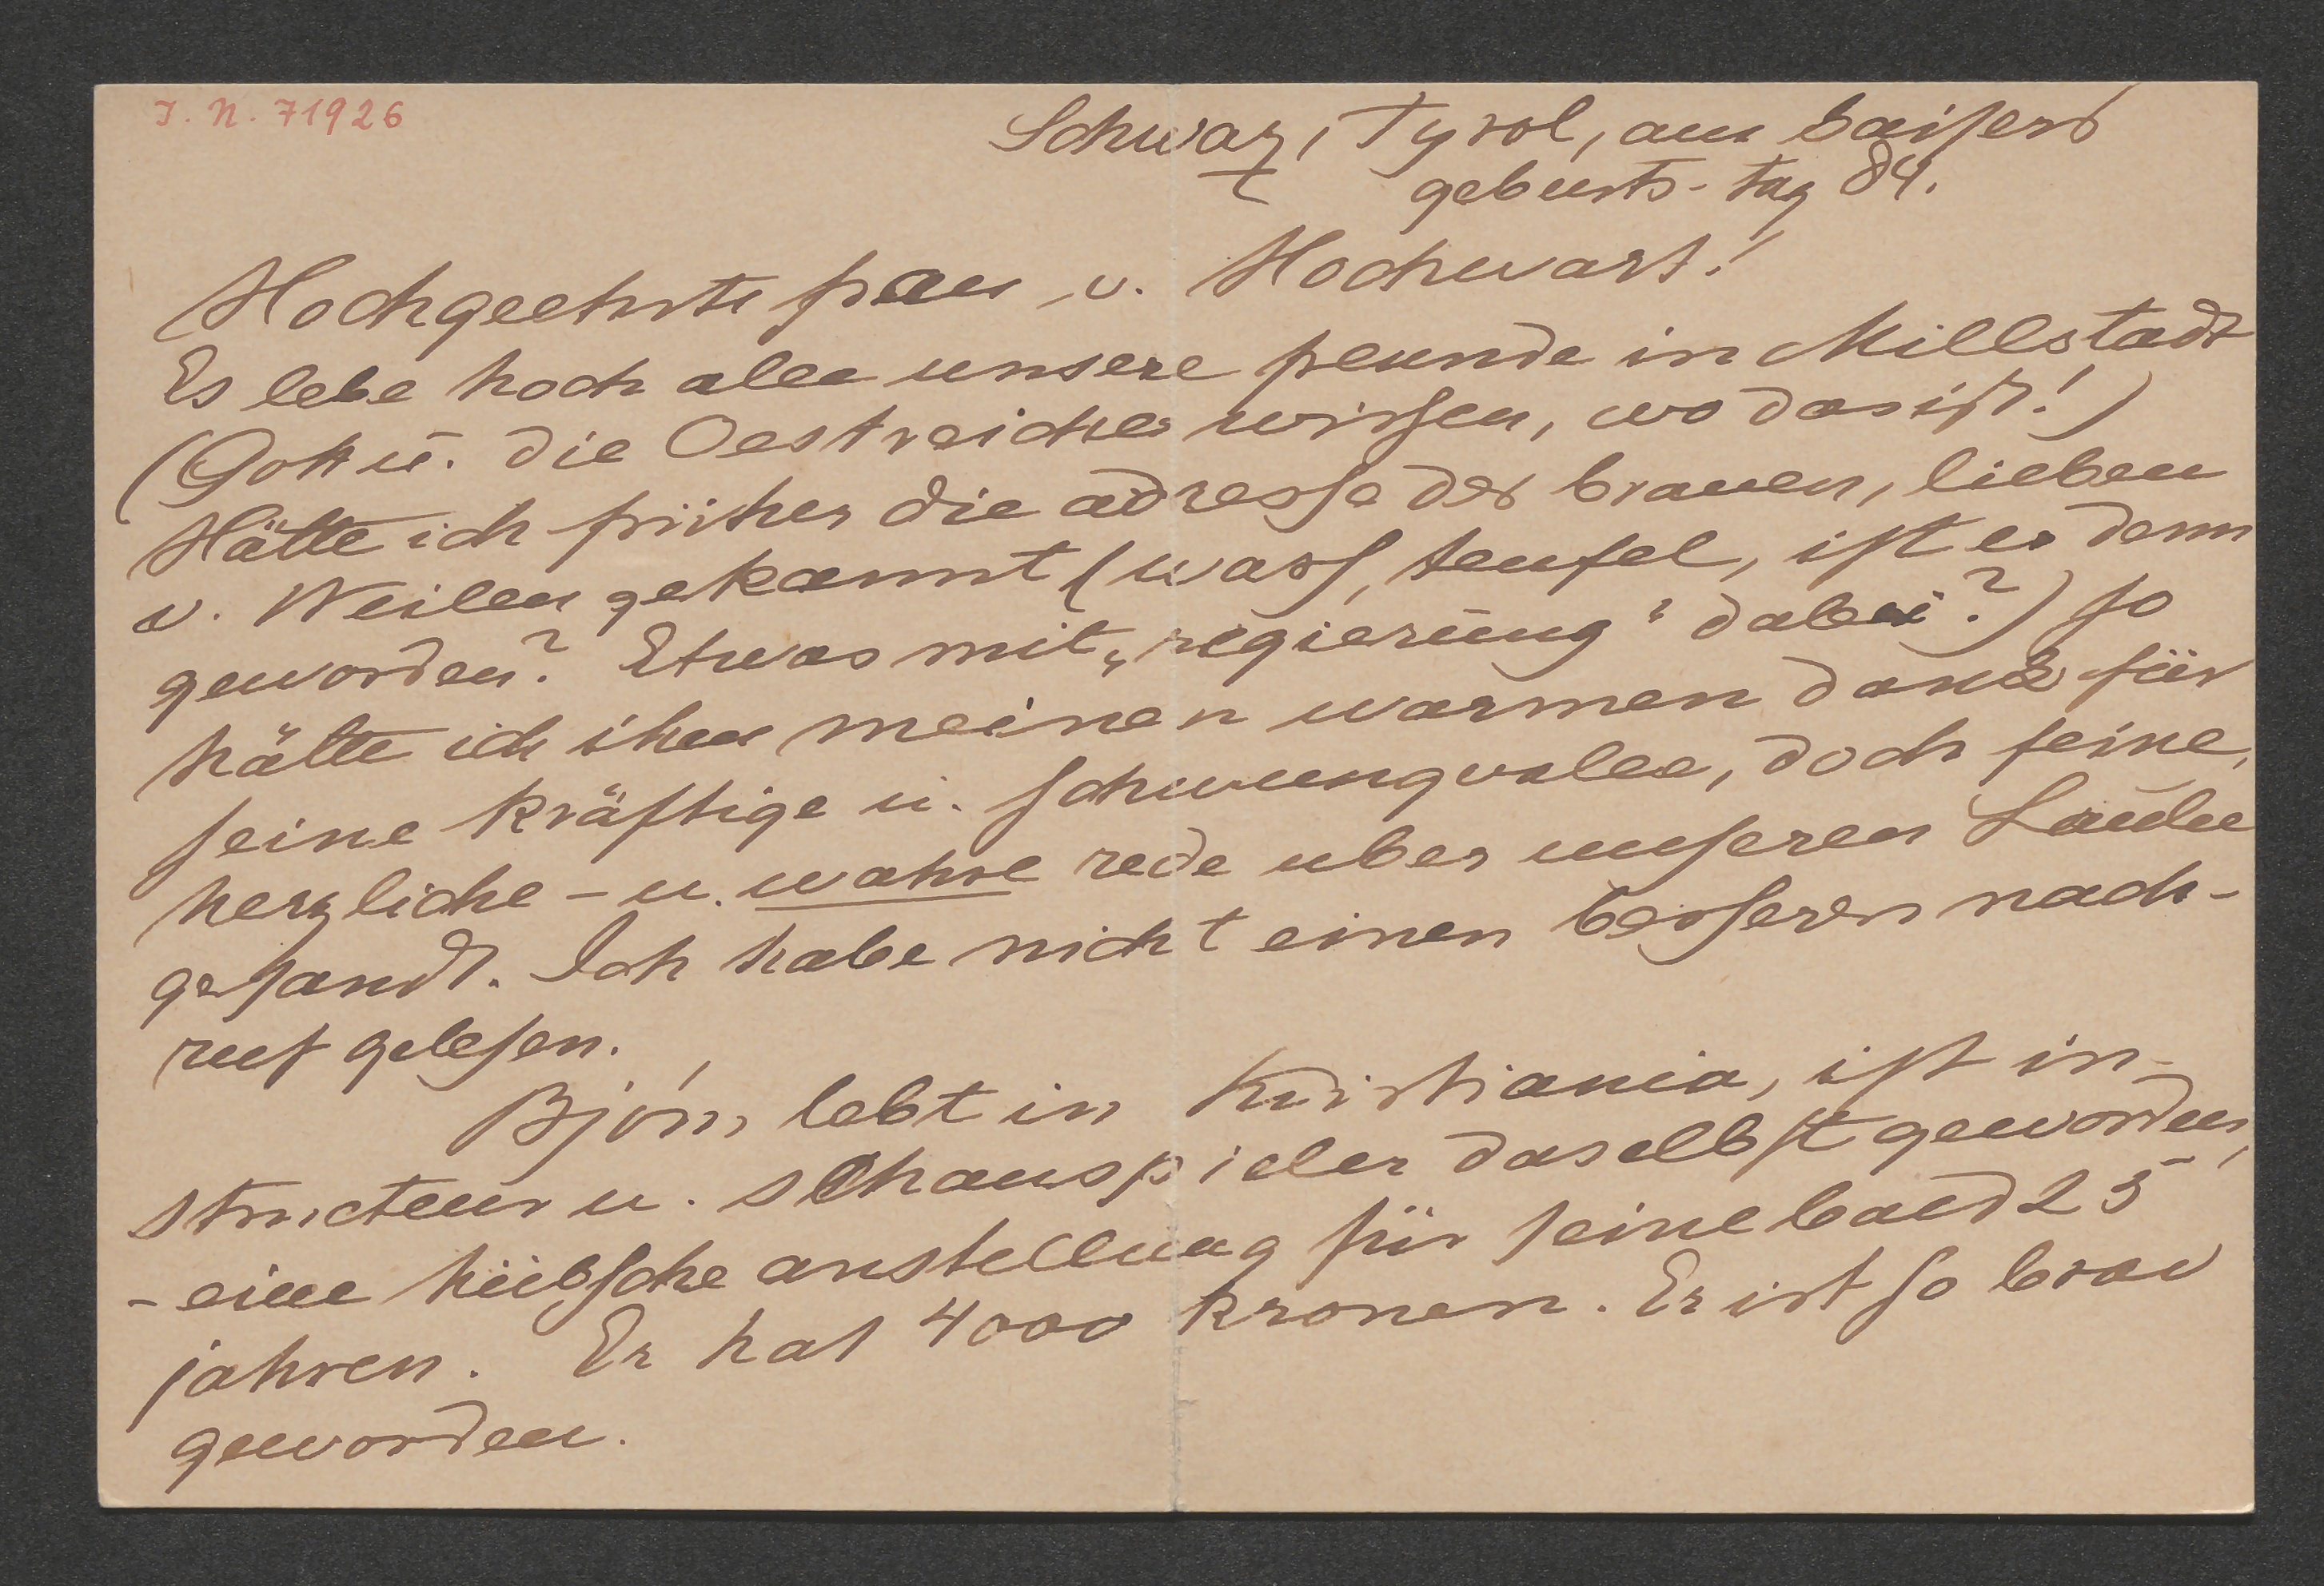 I. N. 71926
Schwaz, Tyrol, am kaisers
geburts-tag 84.
Hochgeehrte frau v. Hochwart!
Es lebe hoch alle unsere freunde in Millstadt
(Gott u. die Oestreicher wissen, wo das ist!)
Hätte ich früher die adresse des braven, lieben
v. Weilen gekannt (was, teufel, ist er denn
geworden? Etwas mit „regierung“ dabei?) so
hätte ich ihm meinen warmen dank für
seine kräftige u. schwungvolle, doch feine,
herzliche – u. wahre rede uber unseren Laube
gesandt. Ich habe nicht einen besseren nach-
ruf gelesen.
Bjørn lebt in Kristiania, ist in-
structeur u. schauspieler daselbst geworden,
– eine hübsche anstellung für seine bald 25
jahren. Er hat 4000 kronen. Er ist so brav
geworden.